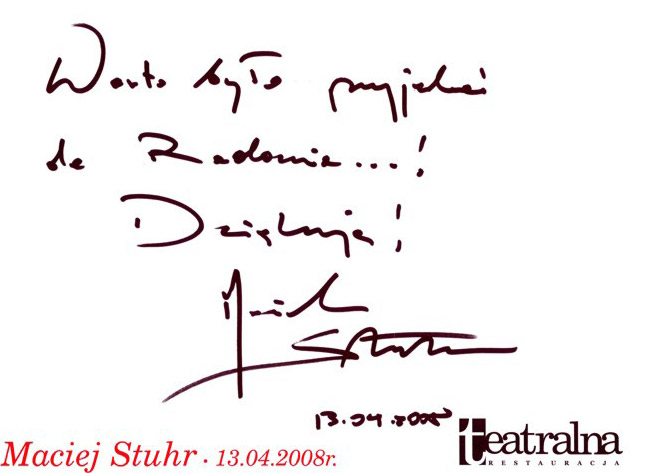 Warto było przyjechać
do Radomia...!
Dziękuję!
Maciek
Stuhr
13.04.2008
Maciej Stuhr · 13.04.2008r.
teatralna
RESTAURACJA